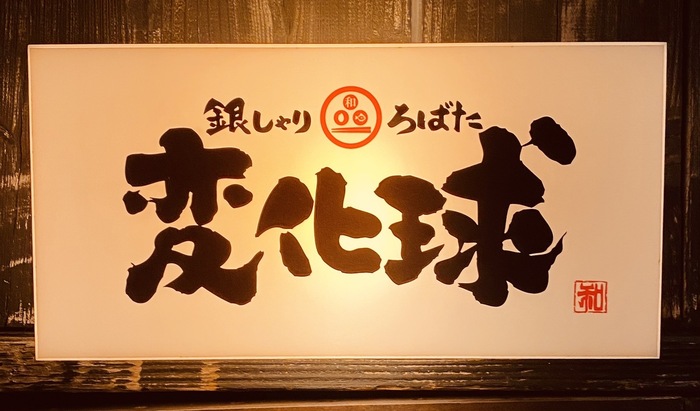 銀しゃり 和 ろばた
変化球
和